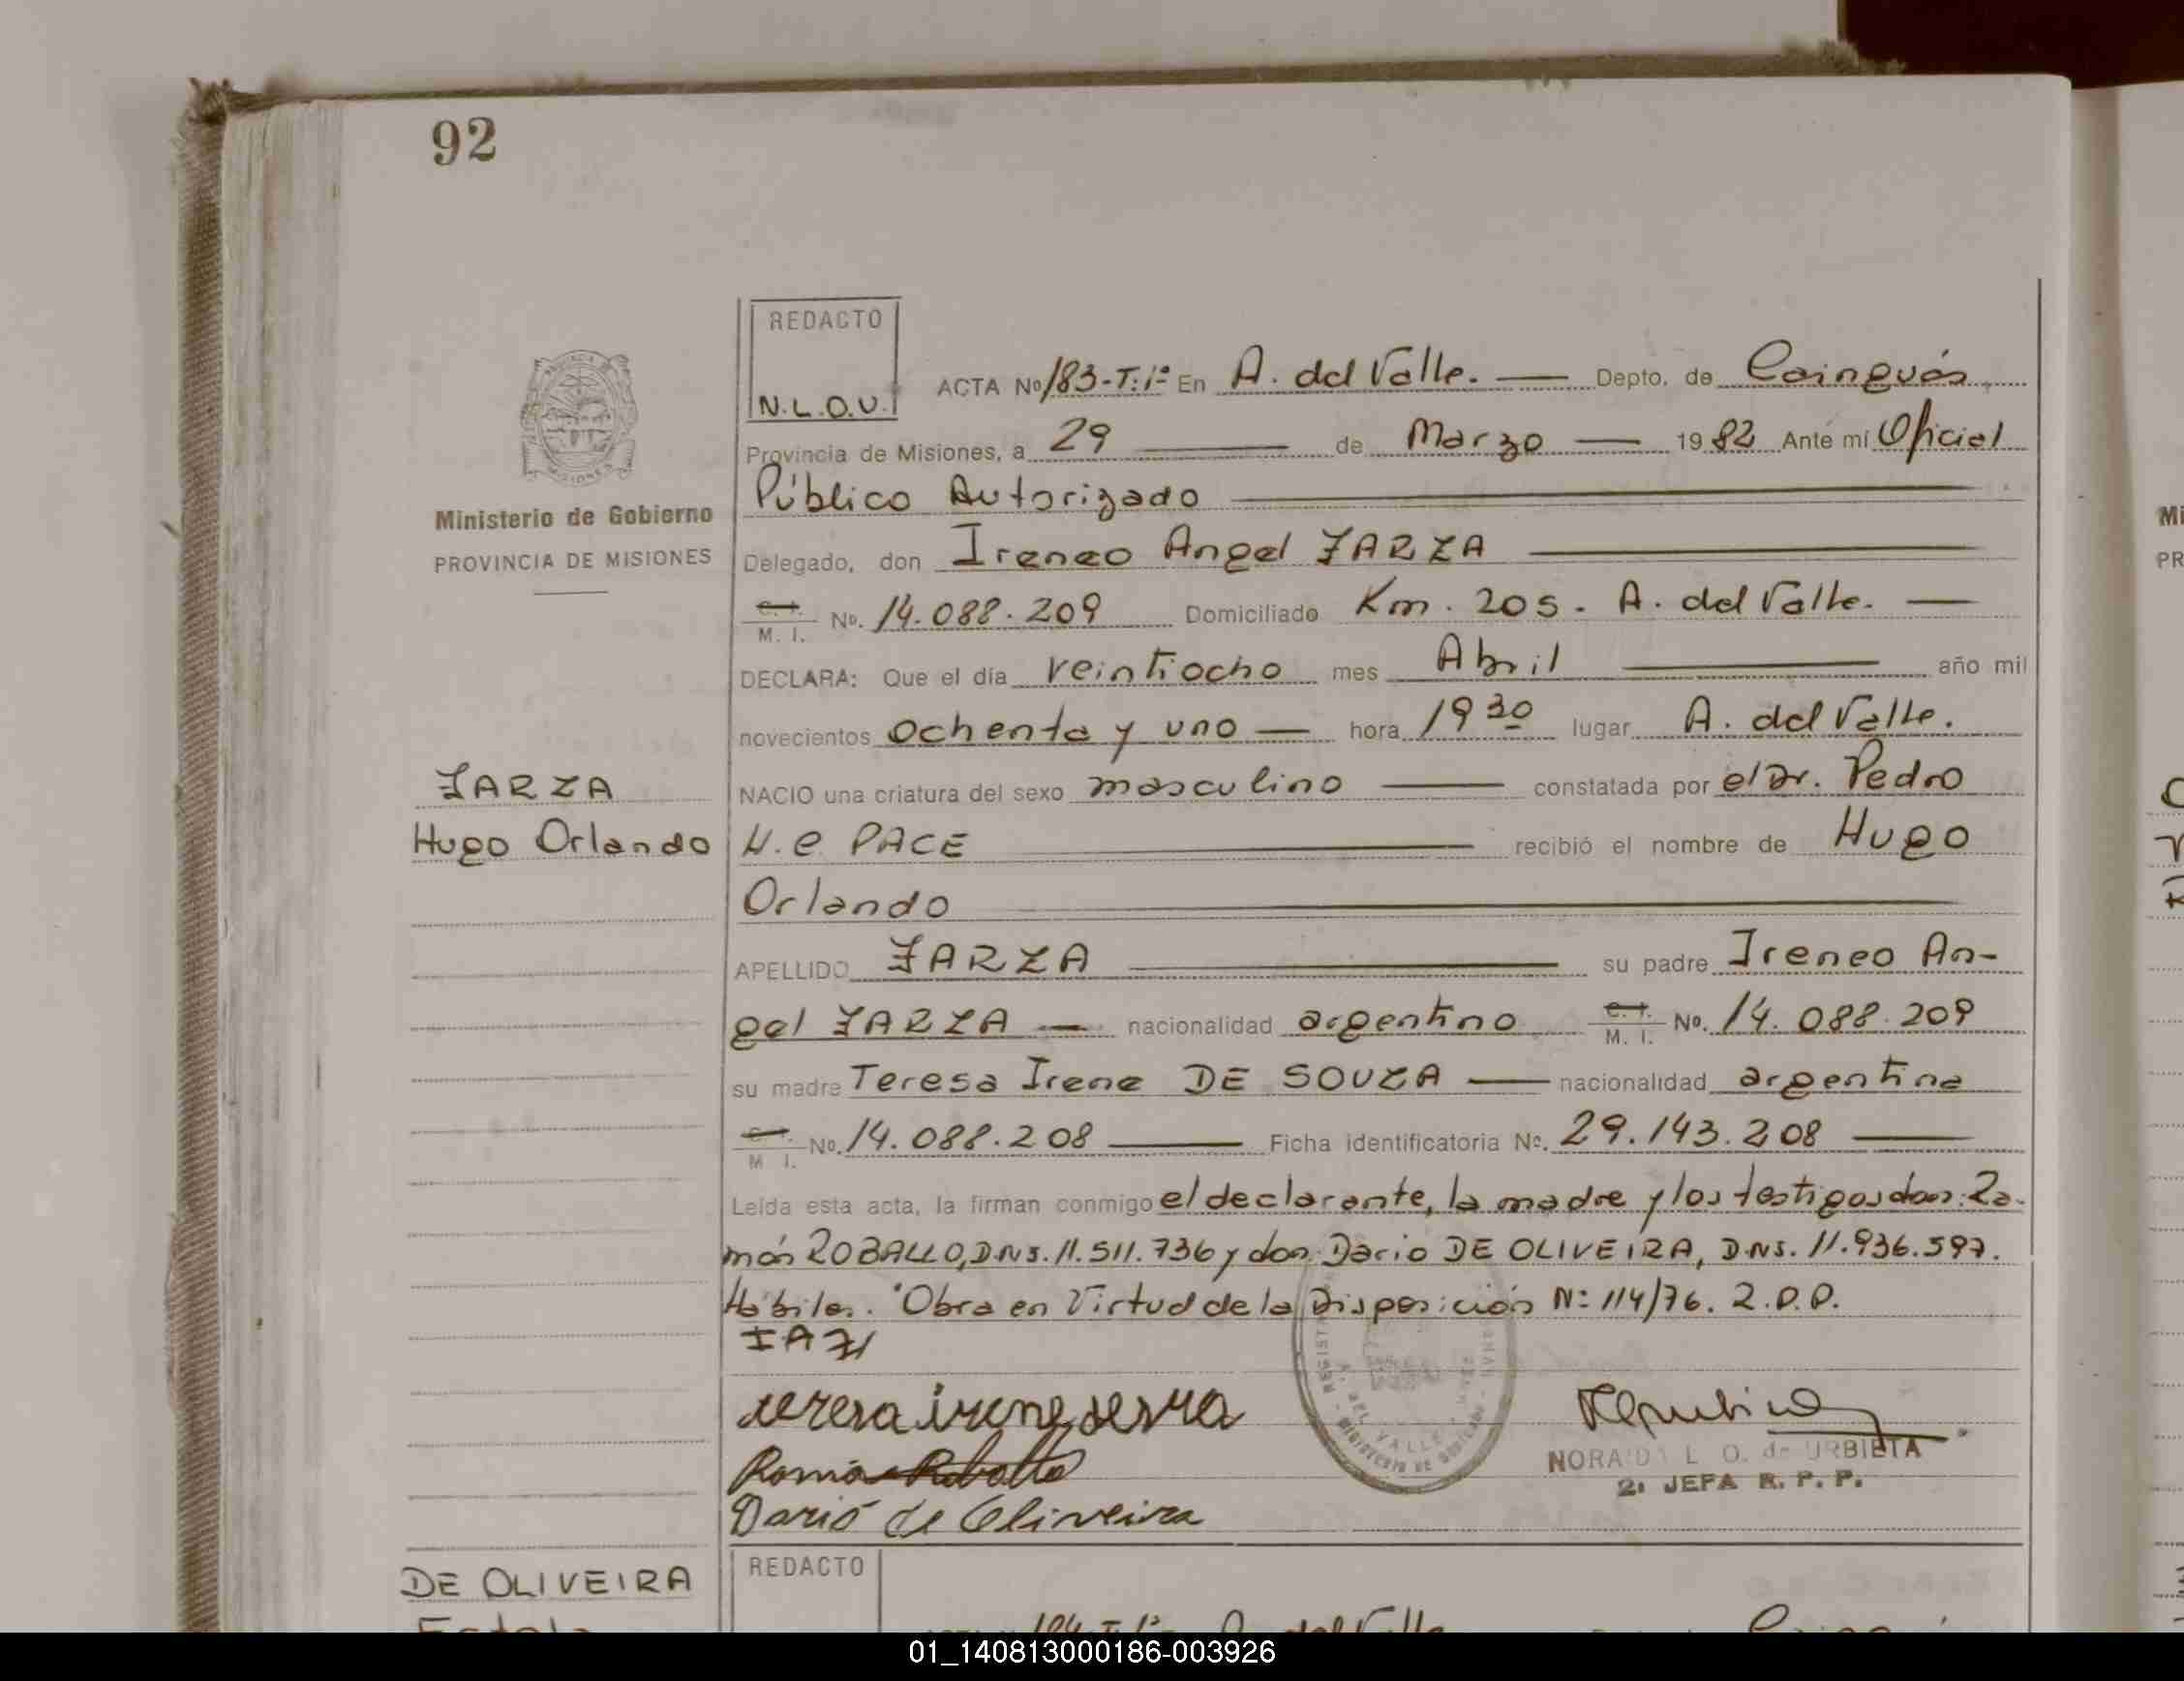 92
REDACTO
N.L.O.U.
ACTA No 183-T:1º En A. del Valle. — Depto. de Cainguás
Provincia de Misiones, a 29 — de Marzo — 1982 Ante mí Oficial
Público Autorizado
Ministerio de Gobierno
PROVINCIA DE MISIONES
Delegado, don Ireneo Angel ZARZA
C. I.
M. I. No. 14.088.209 Domiciliado Km. 205. A. del Valle. —
DECLARA: Que el día veintiocho mes Abril — año mil
novecientos ochenta y uno — hora 19 30 lugar A. del Valle.
ZARZA
Hugo Orlando
NACIO una criatura del sexo masculino — constatada por el Dr. Pedro
H. C. PACE — recibió el nombre de Hugo
Orlando
APELLIDO ZARZA — su padre Ireneo An-
gel ZARZA — nacionalidad argentino C. I. M. I. No. 14.088.209
su madre Teresa Irene DE SOUZA — nacionalidad argentina
C. I. M. I. No. 14.088.208 — Ficha identificatoria No. 29.143.208 —
Leída esta acta, la firman conmigo el declarante, la madre y los testigos don: Ra-
món ROBALLO, D.N.I. 11.511.736 y don Dario DE OLIVEIRA, D.N.I. 11.936.597.
Hábiles. Obra en Virtud de la Disposición Nº 114/76. R.P.P.
IAZ
Dario de Oliveira
NORA L. O. de URBIETA
2ª JEFA R. P. P.
A. DEL VALLE
DE OLIVEIRA
REDACTO
01_140813000186-003926